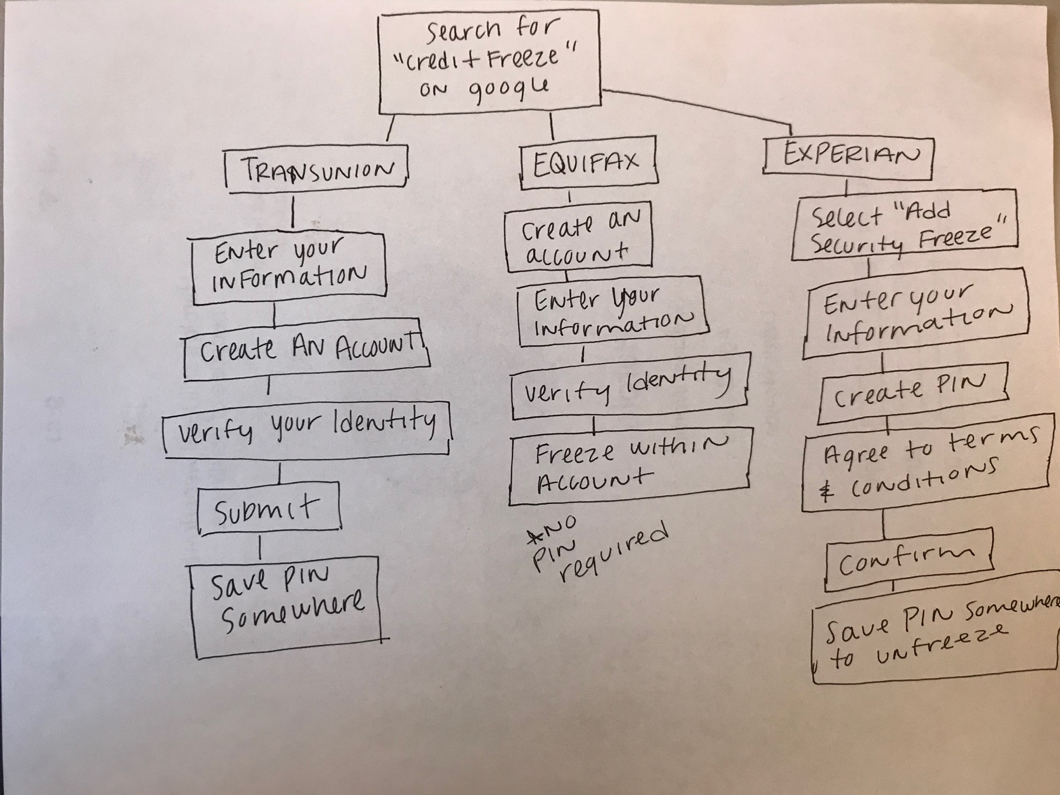 Search for
"Credit Freeze"
on google
TRANSUNION
Enter your
information
Create An Account
Verify your Identity
Submit
Save PIN
Somewhere
EQUIFAX
Create an
account
Enter Your
Information
Verify Identity
Freeze within
Account
*NO
PIN
required
EXPERIAN
Select "Add
Security Freeze"
Enter your
Information
Create PIN
Agree to terms
& conditions
Confirm
Save PIN Somewhere
to unfreeze